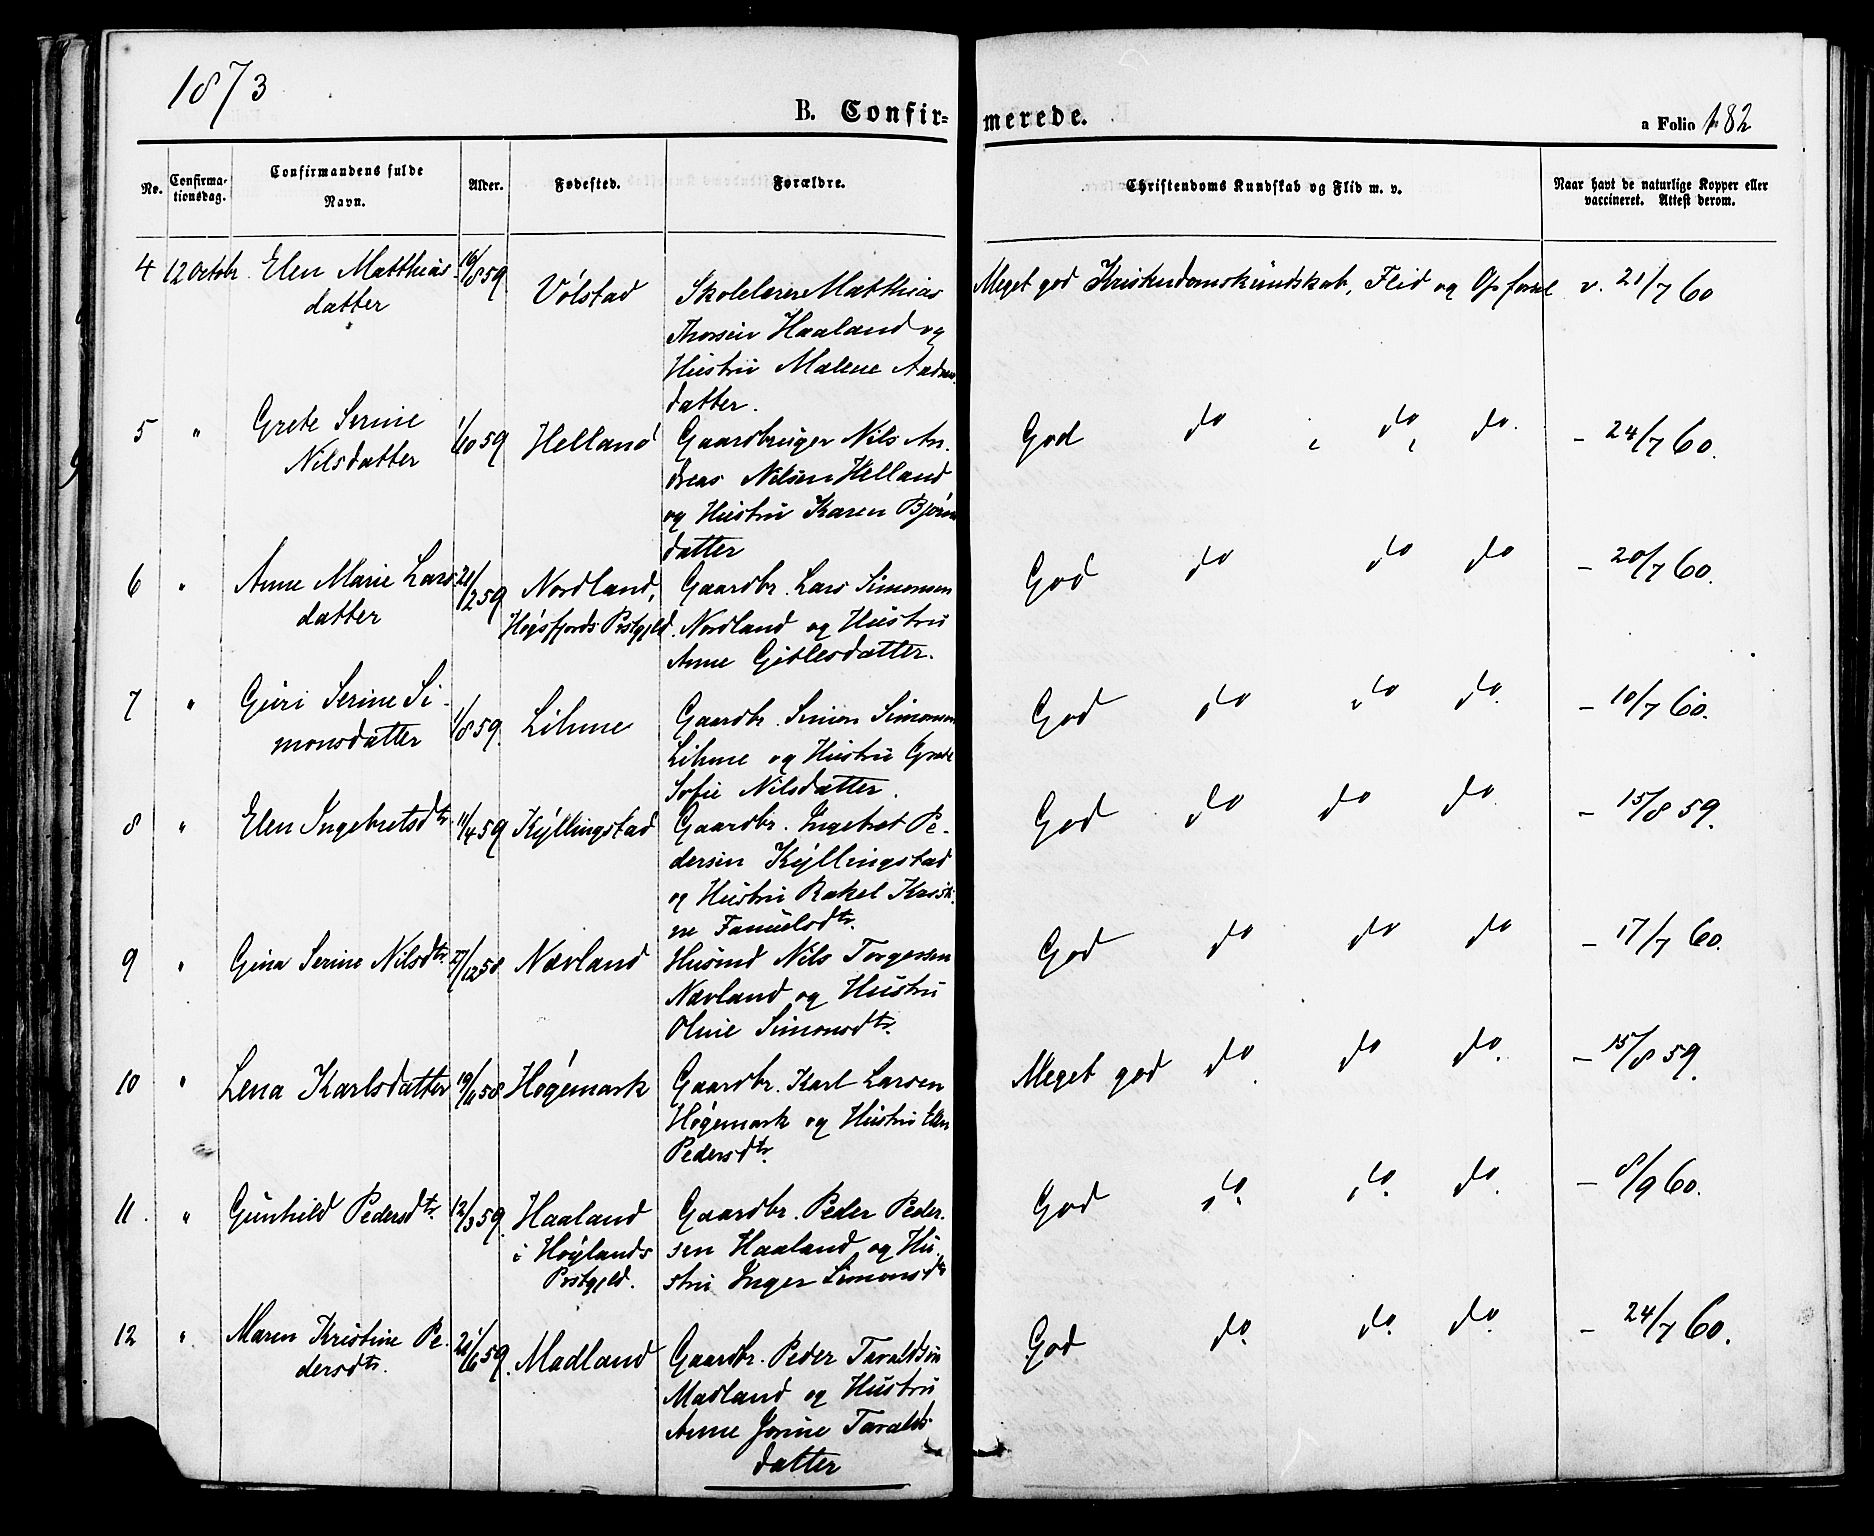 1873
B. Confir-
merede.
a Folio 182
No.
Confirma-
tionsdag.
Confirmandens fulde
Navn.
Alder.
Fødested.
Forældre.
Christendoms Kundskab og Flid m. v.
Naar havt de naturlige Kopper eller
vaccineret. Attest derom.
4 12 Octobr. Elen Matthias-
datter
16/8 59.
Vølstad
Skolelærer Matthias
Thorsen Haaland og
Hustru Malene
datter.
Meget god Kristendomskundskab, Flid og Opførsel
v. 21/7 60
5 " Grete Serine
Nilsdatter
1/10 59
Helland
Gaardbruger Nils An-
dreas Nilsen Helland
og Hustru Karen Bjørns
datter
God do do do.
- 24/7 60.
6 " Anne Marie Lars
datter
21/2 59
Nordland,
Høgsfjords Prstgjeld.
Gaardbr. Lars Simonsen
Nordland og Hustru
Anne Gitlesdatter.
God do do do
- 20/7 60.
7 " Guri Serine Si-
monsdatter
1/8 59.
Lihme
Gaardbr. Simon Simonsen
Lihme og Hustru Grete
Sofie Nilsdatter.
God do do do.
- 10/7 60.
8 " Elen Ingebretsdtr
11/4 59
Kyllingstad
Gaardbr. Ingebret Pe-
dersen Kyllingstad
og Hustru Rakel Kristi-
ne Fanuelsdtr.
God do do do
- 15/8 59.
9 " Gina Serine Nilsdtr.
27/12 58.
Nævland
Husmd Nils Torgersen
Nævland og Hustru
Oline Simonsdtr.
God do do do
- 17/7 60.
10 " Lena Karlsdatter
19/11 58
Høgemark
Gaardbr. Karl Larsen
Høgemark og Hustru Elen
Pedersdtr.
Meget god do do do.
- 15/8 59.
11. " Gunhild Pedersdtr.
12/3 59.
Haaland
i Høylands
Prstgjeld.
Gaardbr. Peder Peder-
sen Haaland og Hu-
stru Inger Simonsdtr
God do. do. do.
- 8/9 60.
12 " Maren Kristine Pe-
dersdtr.
21/6 59.
Madland
Gaardbr. Peder Tavaldsøn
Madland og Hustru
Anne Jorine Tavalds-
datter
God do. do. do.
- 24/7 60.